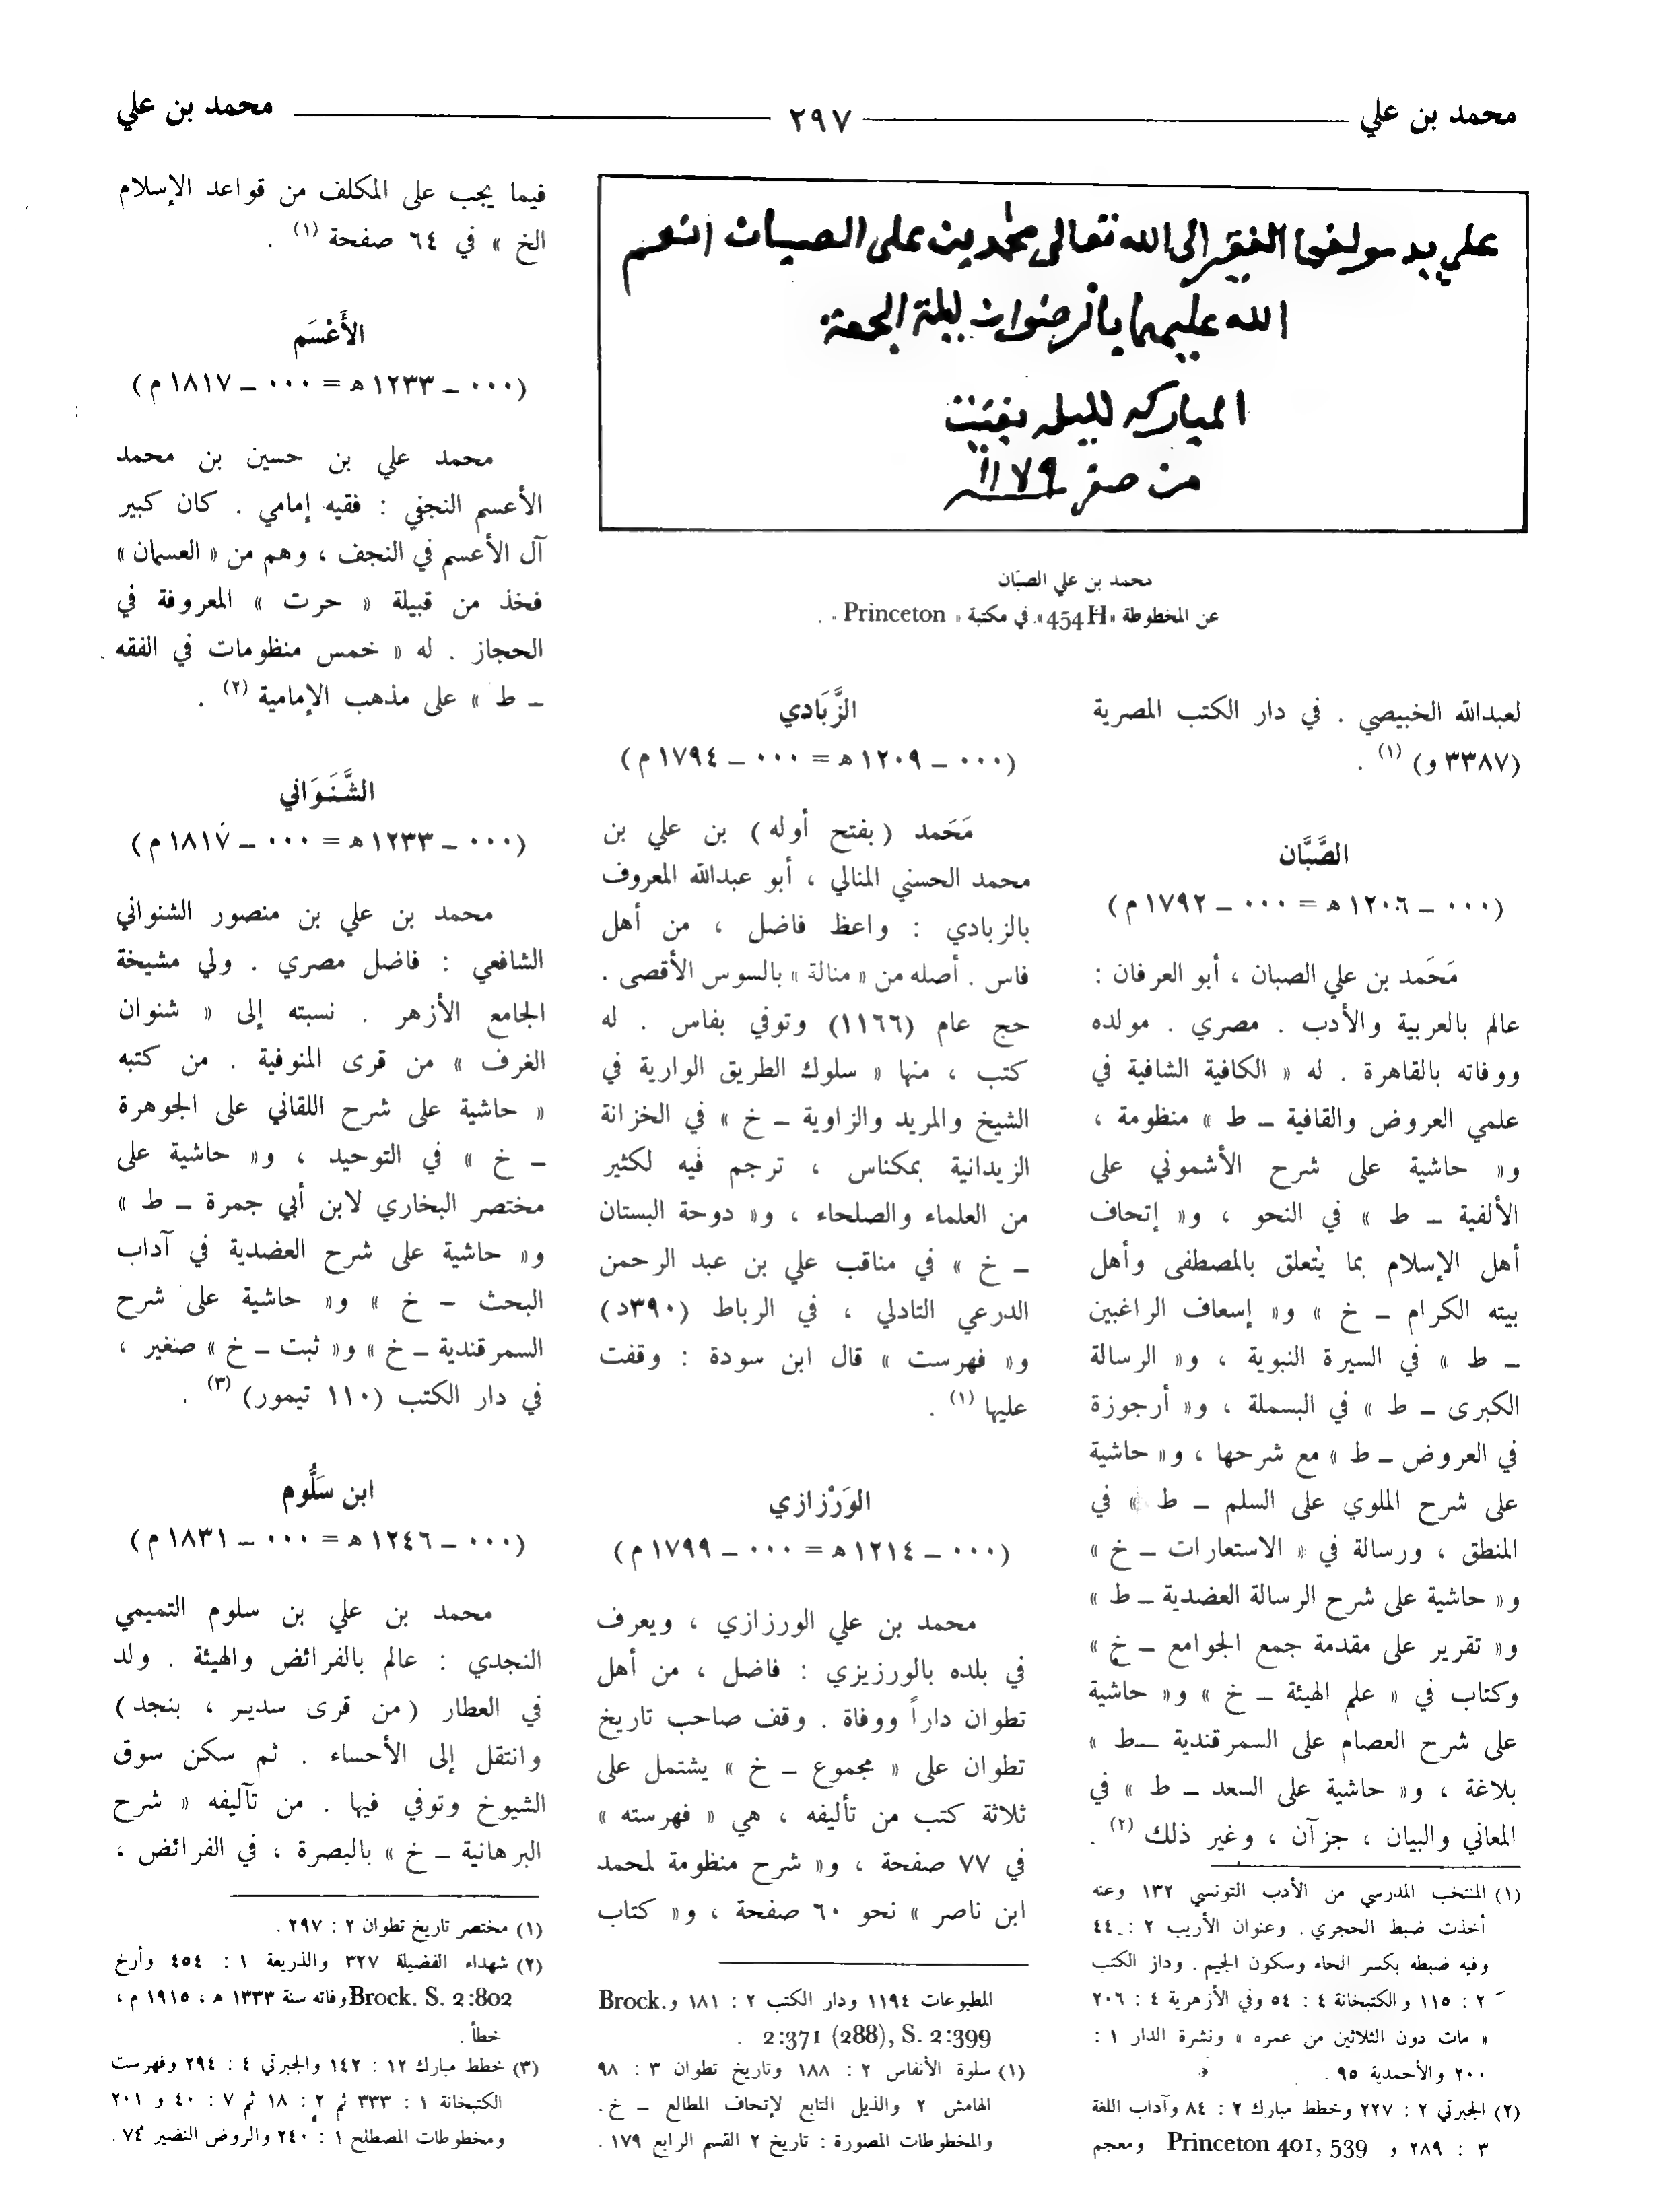 محمد بن علي ٢٩٧ محمد بن علي
علي يد مولفها الفقير الى الله تعالى محمد بن على الصبان انعم
الله عليهما بالرضوان ليلة الجمعة
المباركه لليله بقيت
من صفر ١١٧٩
محمد بن علي الصبّان
عن المخطوطة «454H» في مكتبة « Princeton » .
لعبدالله الخبيصي . في دار الكتب المصرية
(٣٣٨٧ و) (١) .
الصَّبَّان
(٠٠٠ ــ ١٢٠٦ هـ = ٠٠٠ ــ ١٧٩٢ م)
مَحَمد بن علي الصبان ، أبو العرفان :
عالم بالعربية والأدب . مصري . مولده
ووفاته بالقاهرة . له « الكافية الشافية في
علمي العروض والقافية ــ ط » منظومة ،
و« حاشية على شرح الأشموني على
الألفية ــ ط » في النحو ، و« إتحاف
أهل الإسلام بما يتعلق بالمصطفى وأهل
بيته الكرام ــ خ » و« إسعاف الراغبين
ــ ط » في السيرة النبوية ، و« الرسالة
الكبرى ــ ط » في البسملة ، و« أرجوزة
في العروض ــ ط » مع شرحها ، و« حاشية
على شرح الملوي على السلم ــ ط » في
المنطق ، ورسالة في « الاستعارات ــ خ »
و« حاشية على شرح الرسالة العضدية ــ ط »
و« تقرير على مقدمة جمع الجوامع ــ خ »
وكتاب في « علم الهيئة ــ خ » و« حاشية
على شرح العصام على السمرقندية ــ ط »
بلاغة ، و« حاشية على السعد ــ ط » في
المعاني والبيان ، جزآن ، وغير ذلك (٢) .
(١) المنتخب المدرسي من الأدب التونسي ١٣٢ وعنه
أخذت ضبط الحجري . وعنوان الأريب ٢ : ٤٤
وفيه ضبطه بكسر الحاء وسكون الجيم . ودار الكتب
٢ : ١١٥ والكتبخانة ٤ : ٥٤ وفي الأزهرية ٤ : ٢٠٦
« مات دون الثلاثين من عمره » ونشرة الدار ١ :
٢٠٠ والأحمدية ٩٥ .
(٢) الجبرتي ٢ : ٢٢٧ وخطط مبارك ٢ : ٨٤ وآداب اللغة
٣ : ٢٨٩ و Princeton 401, 539 ومعجم
الزَّبَادي
(٠٠٠ ــ ١٢٠٩ هـ = ٠٠٠ ــ ١٧٩٤ م)
مَحَمد (بفتح أوله) بن علي بن
محمد الحسني المنالي ، أبو عبدالله المعروف
بالزبادي : واعظ فاضل ، من أهل
فاس . أصله من « منالة » بالسوس الأقصى .
حج عام (١١٦٦) وتوفي بفاس . له
كتب ، منها « سلوك الطريق الوارية في
الشيخ والمريد والزاوية ــ خ » في الخزانة
الزيدانية بمكناس ، ترجم فيه لكثير
من العلماء والصلحاء ، و« دوحة البستان
ــ خ » في مناقب علي بن عبد الرحمن
الدرعي التادلي ، في الرباط (٣٩٠د)
و« فهرست » قال ابن سودة : وقفت
عليها (١) .
الوَرْزازي
(٠٠٠ ــ ١٢١٤ هـ = ٠٠٠ ــ ١٧٩٩ م)
محمد بن علي الورزازي ، ويعرف
في بلده بالورزيزي : فاضل ، من أهل
تطوان داراً ووفاة . وقف صاحب تاريخ
تطوان على « مجموع ــ خ » يشتمل على
ثلاثة كتب من تأليفه ، هي « فهرسته »
في ٧٧ صفحة ، و« شرح منظومة لمحمد
ابن ناصر » نحو ٦٠ صفحة ، و« كتاب
المطبوعات ١١٩٤ ودار الكتب ٢ : ١٨١ و Brock.
2:371 (288), S. 2:399 .
(١) سلوة الأنفاس ٢ : ١٨٨ وتاريخ تطوان ٣ : ٩٨
الهامش ٢ والذيل التابع لإتحاف المطالع ــ خ .
والمخطوطات المصورة : تاريخ ٢ القسم الرابع ١٧٩ .
فيما يجب على المكلف من قواعد الإسلام
الخ » في ٦٤ صفحة (١) .
الأَعْسَم
(٠٠٠ ــ ١٢٣٣ هـ = ٠٠٠ ــ ١٨١٧ م)
محمد علي بن حسين بن محمد
الأعسم النجفي : فقيه إمامي . كان كبير
آل الأعسم في النجف ، وهم من « العسمان »
فخذ من قبيلة « حرت » المعروفة في
الحجاز . له « خمس منظومات في الفقه
ــ ط » على مذهب الإمامية (٢) .
الشَّنَوَاني
(٠٠٠ ــ ١٢٣٣ هـ = ٠٠٠ ــ ١٨١٧ م)
محمد بن علي بن منصور الشنواني
الشافعي : فاضل مصري . ولي مشيخة
الجامع الأزهر . نسبته إلى « شنوان
الغرف » من قرى المنوفية . من كتبه
« حاشية على شرح اللقاني على الجوهرة
ــ خ » في التوحيد ، و« حاشية على
مختصر البخاري لابن أبي جمرة ــ ط »
و« حاشية على شرح العضدية في آداب
البحث ــ خ » و« حاشية على شرح
السمرقندية ــ خ » و« ثبت ــ خ » صغير ،
في دار الكتب (١١٠ تيمور) (٣) .
ابن سَلُّوم
(٠٠٠ ــ ١٢٤٦ هـ = ٠٠٠ ــ ١٨٣١ م)
محمد بن علي بن سلوم التميمي
النجدي : عالم بالفرائض والهيئة . ولد
في العطار (من قرى سدير ، بنجد)
وانتقل إلى الأحساء . ثم سكن سوق
الشيوخ وتوفي فيها . من تآليفه « شرح
البرهانية ــ خ » بالبصرة ، في الفرائض ،
(١) مختصر تاريخ تطوان ٢ : ٢٩٧ .
(٢) شهداء الفضيلة ٣٢٧ والذريعة ١ : ٤٥٤ وأرخ
Brock. S. 2:802 وفاته سنة ١٣٣٣ هـ ، ١٩١٥ م ،
خطأ .
(٣) خطط مبارك ١٢ : ١٤٢ والجبرتي ٤ : ٢٩٤ وفهرست
الكتبخانة ١ : ٣٣٣ ثم ٢ : ١٨ ثم ٧ : ٤٠ و ٢٠١
ومخطوطات المصطلح ١ : ٢٤٠ والروض النضير ٧٤ .